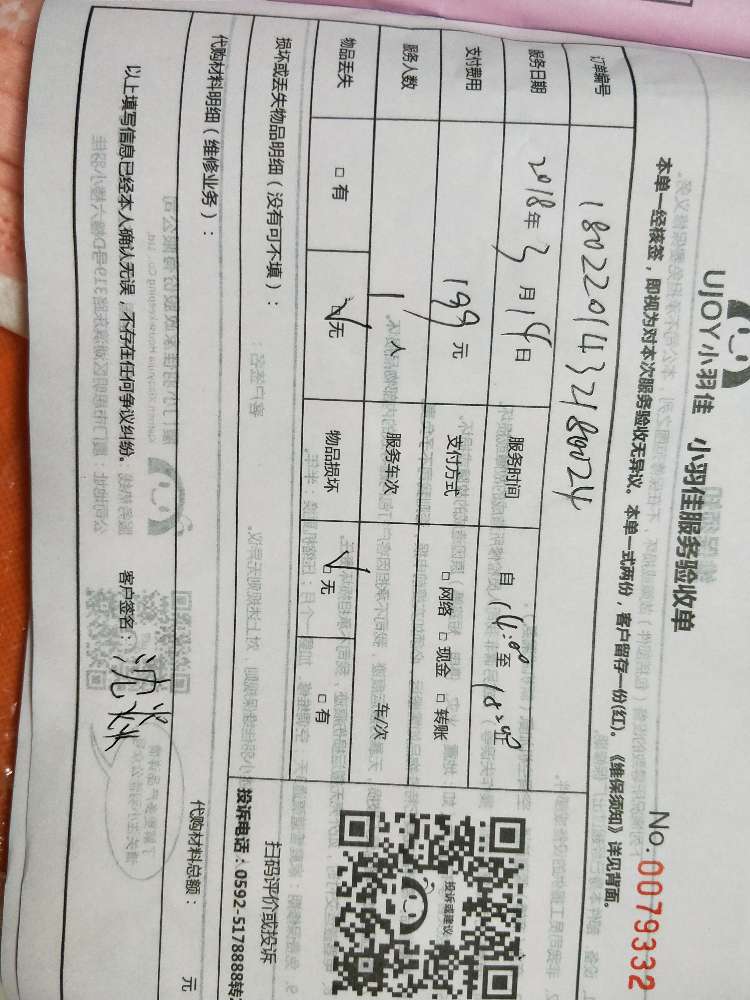 UJOY小羽佳 小羽佳服务验收单
No.0079332
本单一经核签，即视为对本次服务验收无异议。本单一式两份，客户留存一份(红)。《维保须知》详见背面。
订单编号 1802201432480024
服务日期 2018年3月14日 服务时间 自14:00至18:00止
支付费用 199元 支付方式 □网络 □现金 □转账
服务人数 1人 服务车次 车/次
物品丢失 □有 □无 物品损坏 □无 □有
投诉或建议
扫码评价或投诉
投诉电话：0592-5178888转
损坏或丢失物品明细（没有可不填）：
代购材料明细（维修业务）：
代购材料总额： 元
以上填写信息已经本人确认无误，不存在任何争议纠纷。 客户签名：沈